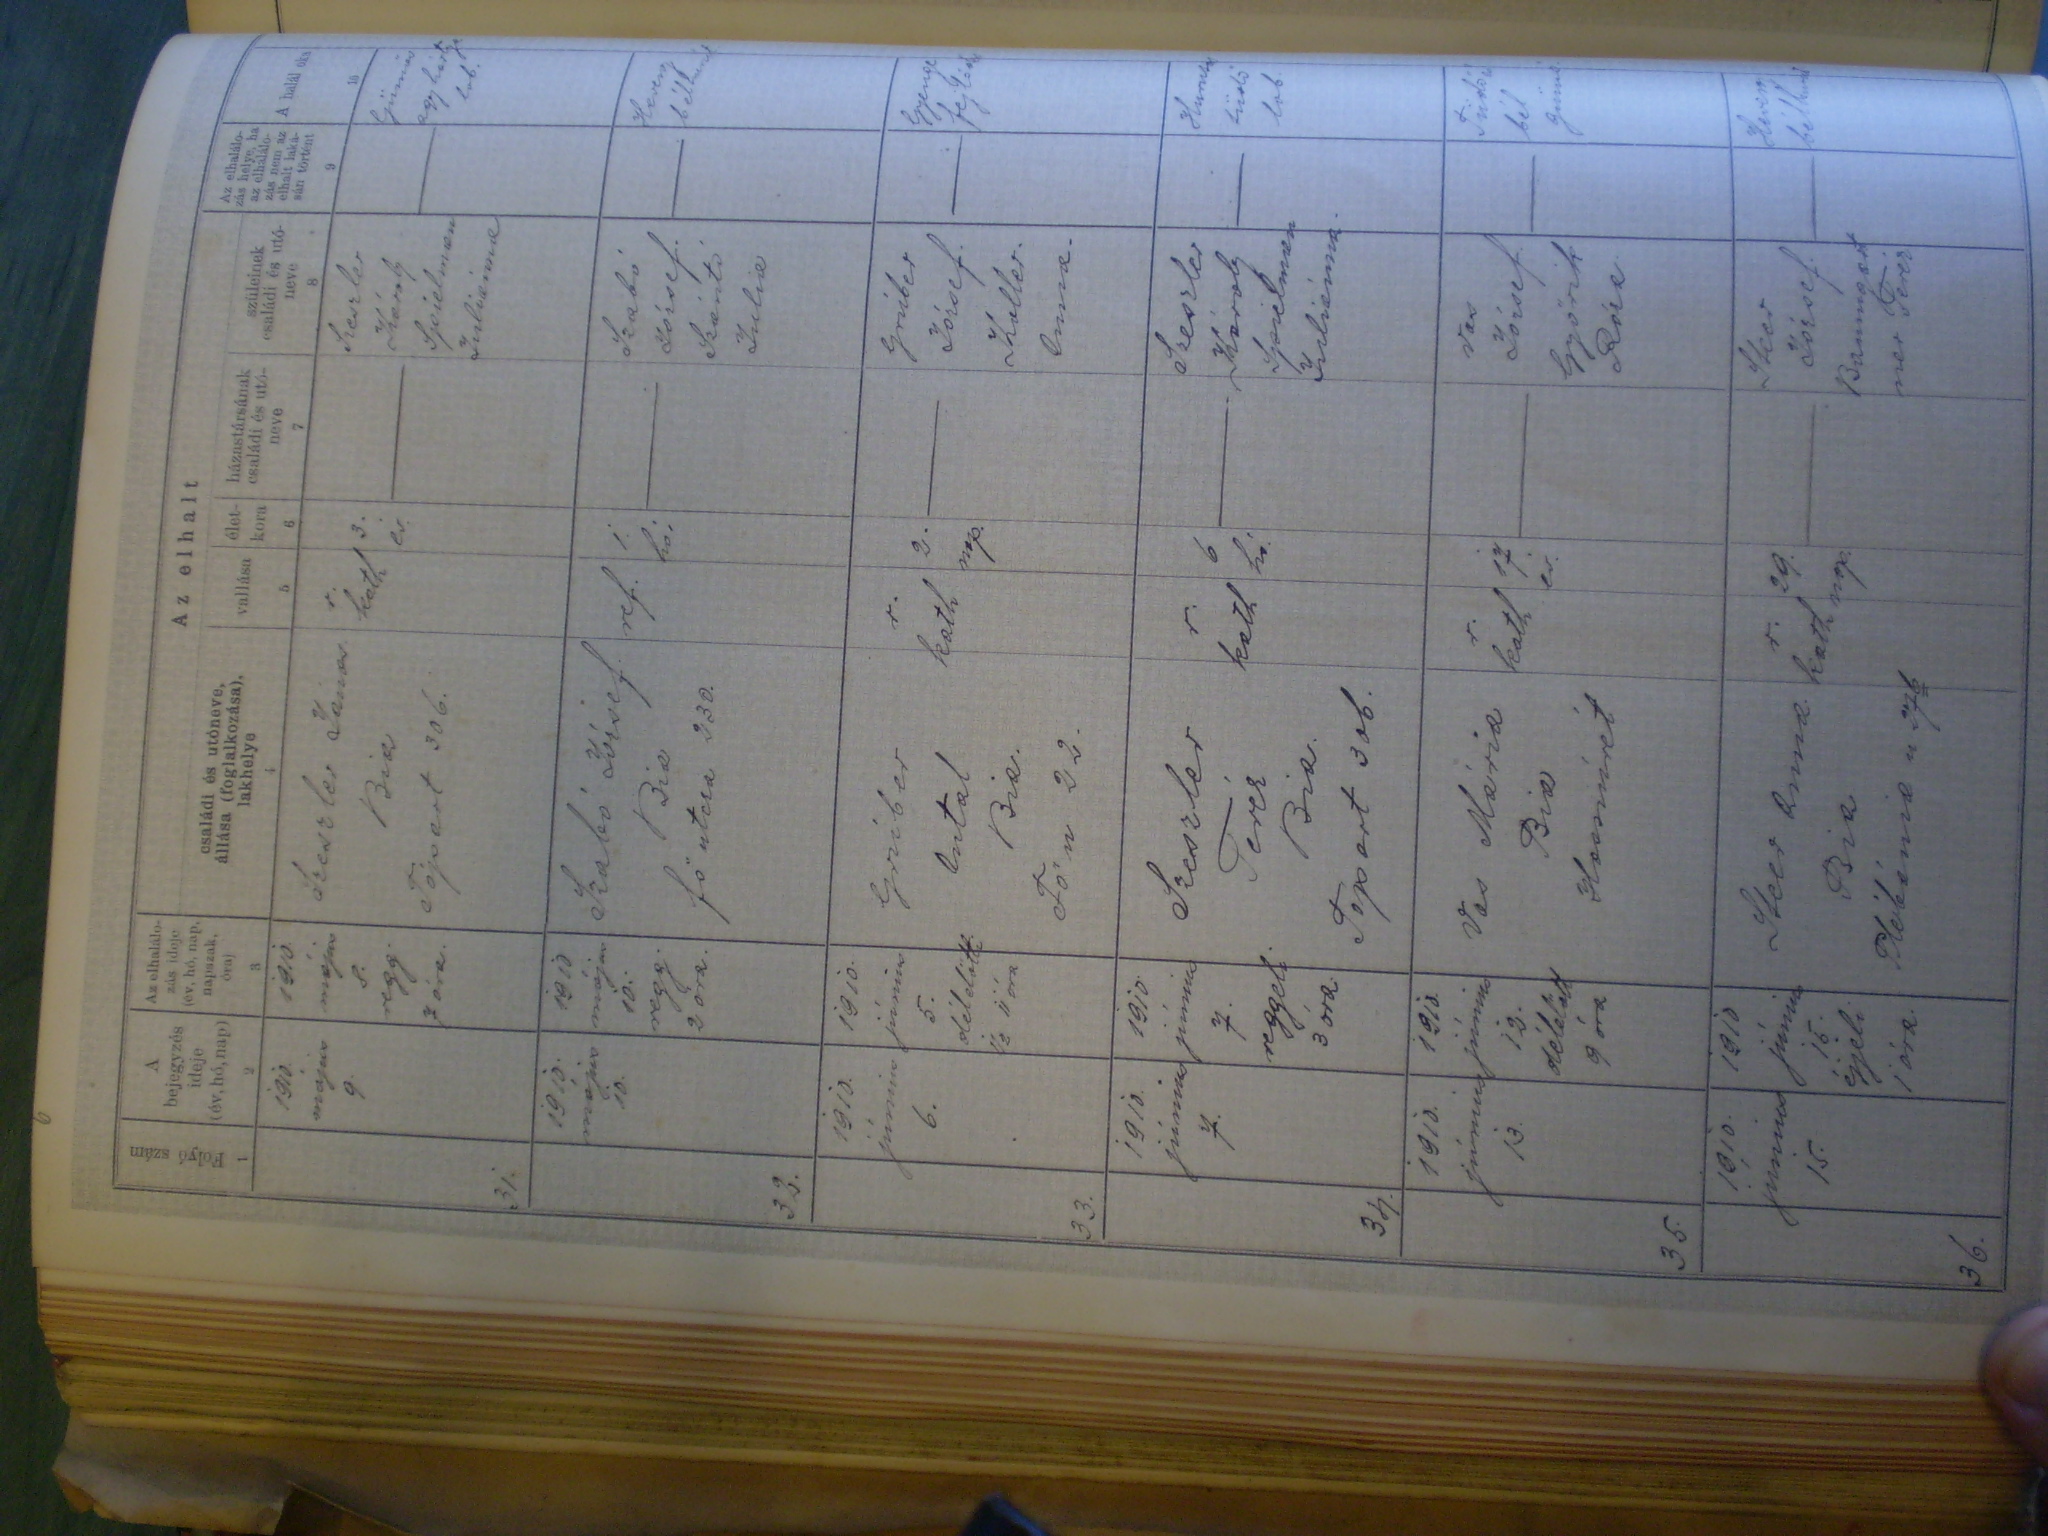 6
Az elhalt
Folyó szám
A bejegyzés ideje (év, hó, nap)
Az elhalálozás ideje (év, hó, nap, napszak, óra)
családi és utóneve, állása (foglalkozása), lakhelye
vallása
életkora
házastársának családi és utóneve
szüleinek családi és utóneve
Az elhalálozás helye, ha az elhalálozás nem az elhalt lakásán történt
A halál oka
1
2
3
4
5
6
7
8
9
10
31.
1910. május 9.
1910. május 8. regg. 3 óra.
Szeszler János
Bia
Tópart 306.
r. kath
3. év.
Szeszler Károly
Spielman Juliánna
Gümős agyhártya lob.
32.
1910. május 10.
1910 május 10. regg. 2 óra.
Szabó József.
Bia
fő utcza 230.
ref.
1. hó.
Szabó József.
Szántó Julia
Heveny bélhurut
33.
1910. június 6.
1910. június 5. délelőtt ½ 11 óra
Griber Antal
Bia.
Fő u 22.
r. kath
2. nap.
Griber József.
Koller Anna.
Gyenge fejlődés
34.
1910. június 7.
1910 június 7. reggeli 3 óra
Szeszler Teréz
Bia.
Topart 306.
r. kath
6 hó.
Szeszler Károly
Spielman Juliánna.
Hurutos tüdő lob.
35.
1910. június 13.
1910. június 12. délelőtt 9 óra
Vas Mária
Bia
r. kath
17 év.
Vas József.
Győrik Róza.
Tüdő bél gümő.
36.
1910. június 15.
1910 június 15. éjjeli 1 óra.
Steer Anna.
Bia
Plébánia u 276
r. kath
29. nap.
Steer József.
Baumgartner Teréz
Heveny bélhurut